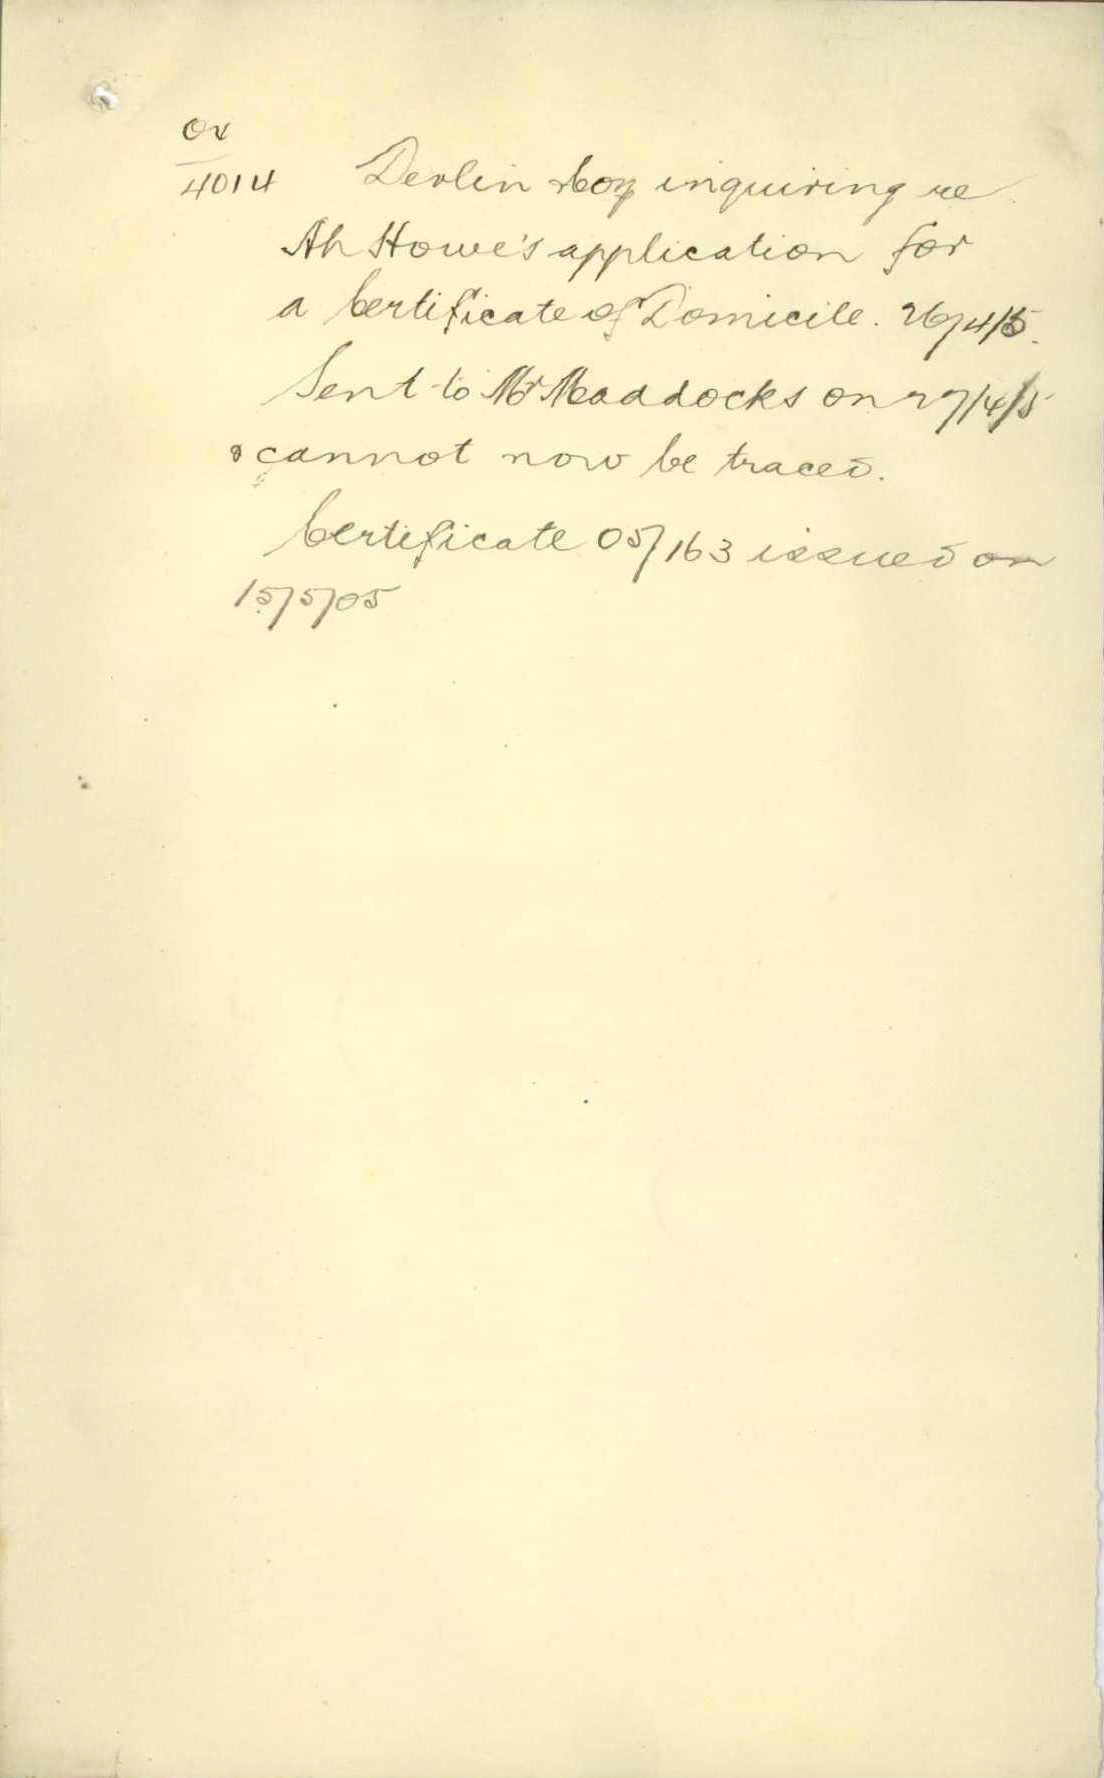 04
4014 Devlin & Coy inquiring re
Ah Howe's application for
a Certificate of Domicile. 26/4/5.
Sent to Mr Maddocks on 27/4/5
& cannot now be traced.
Certificate 05/163 issued on
15/5/05